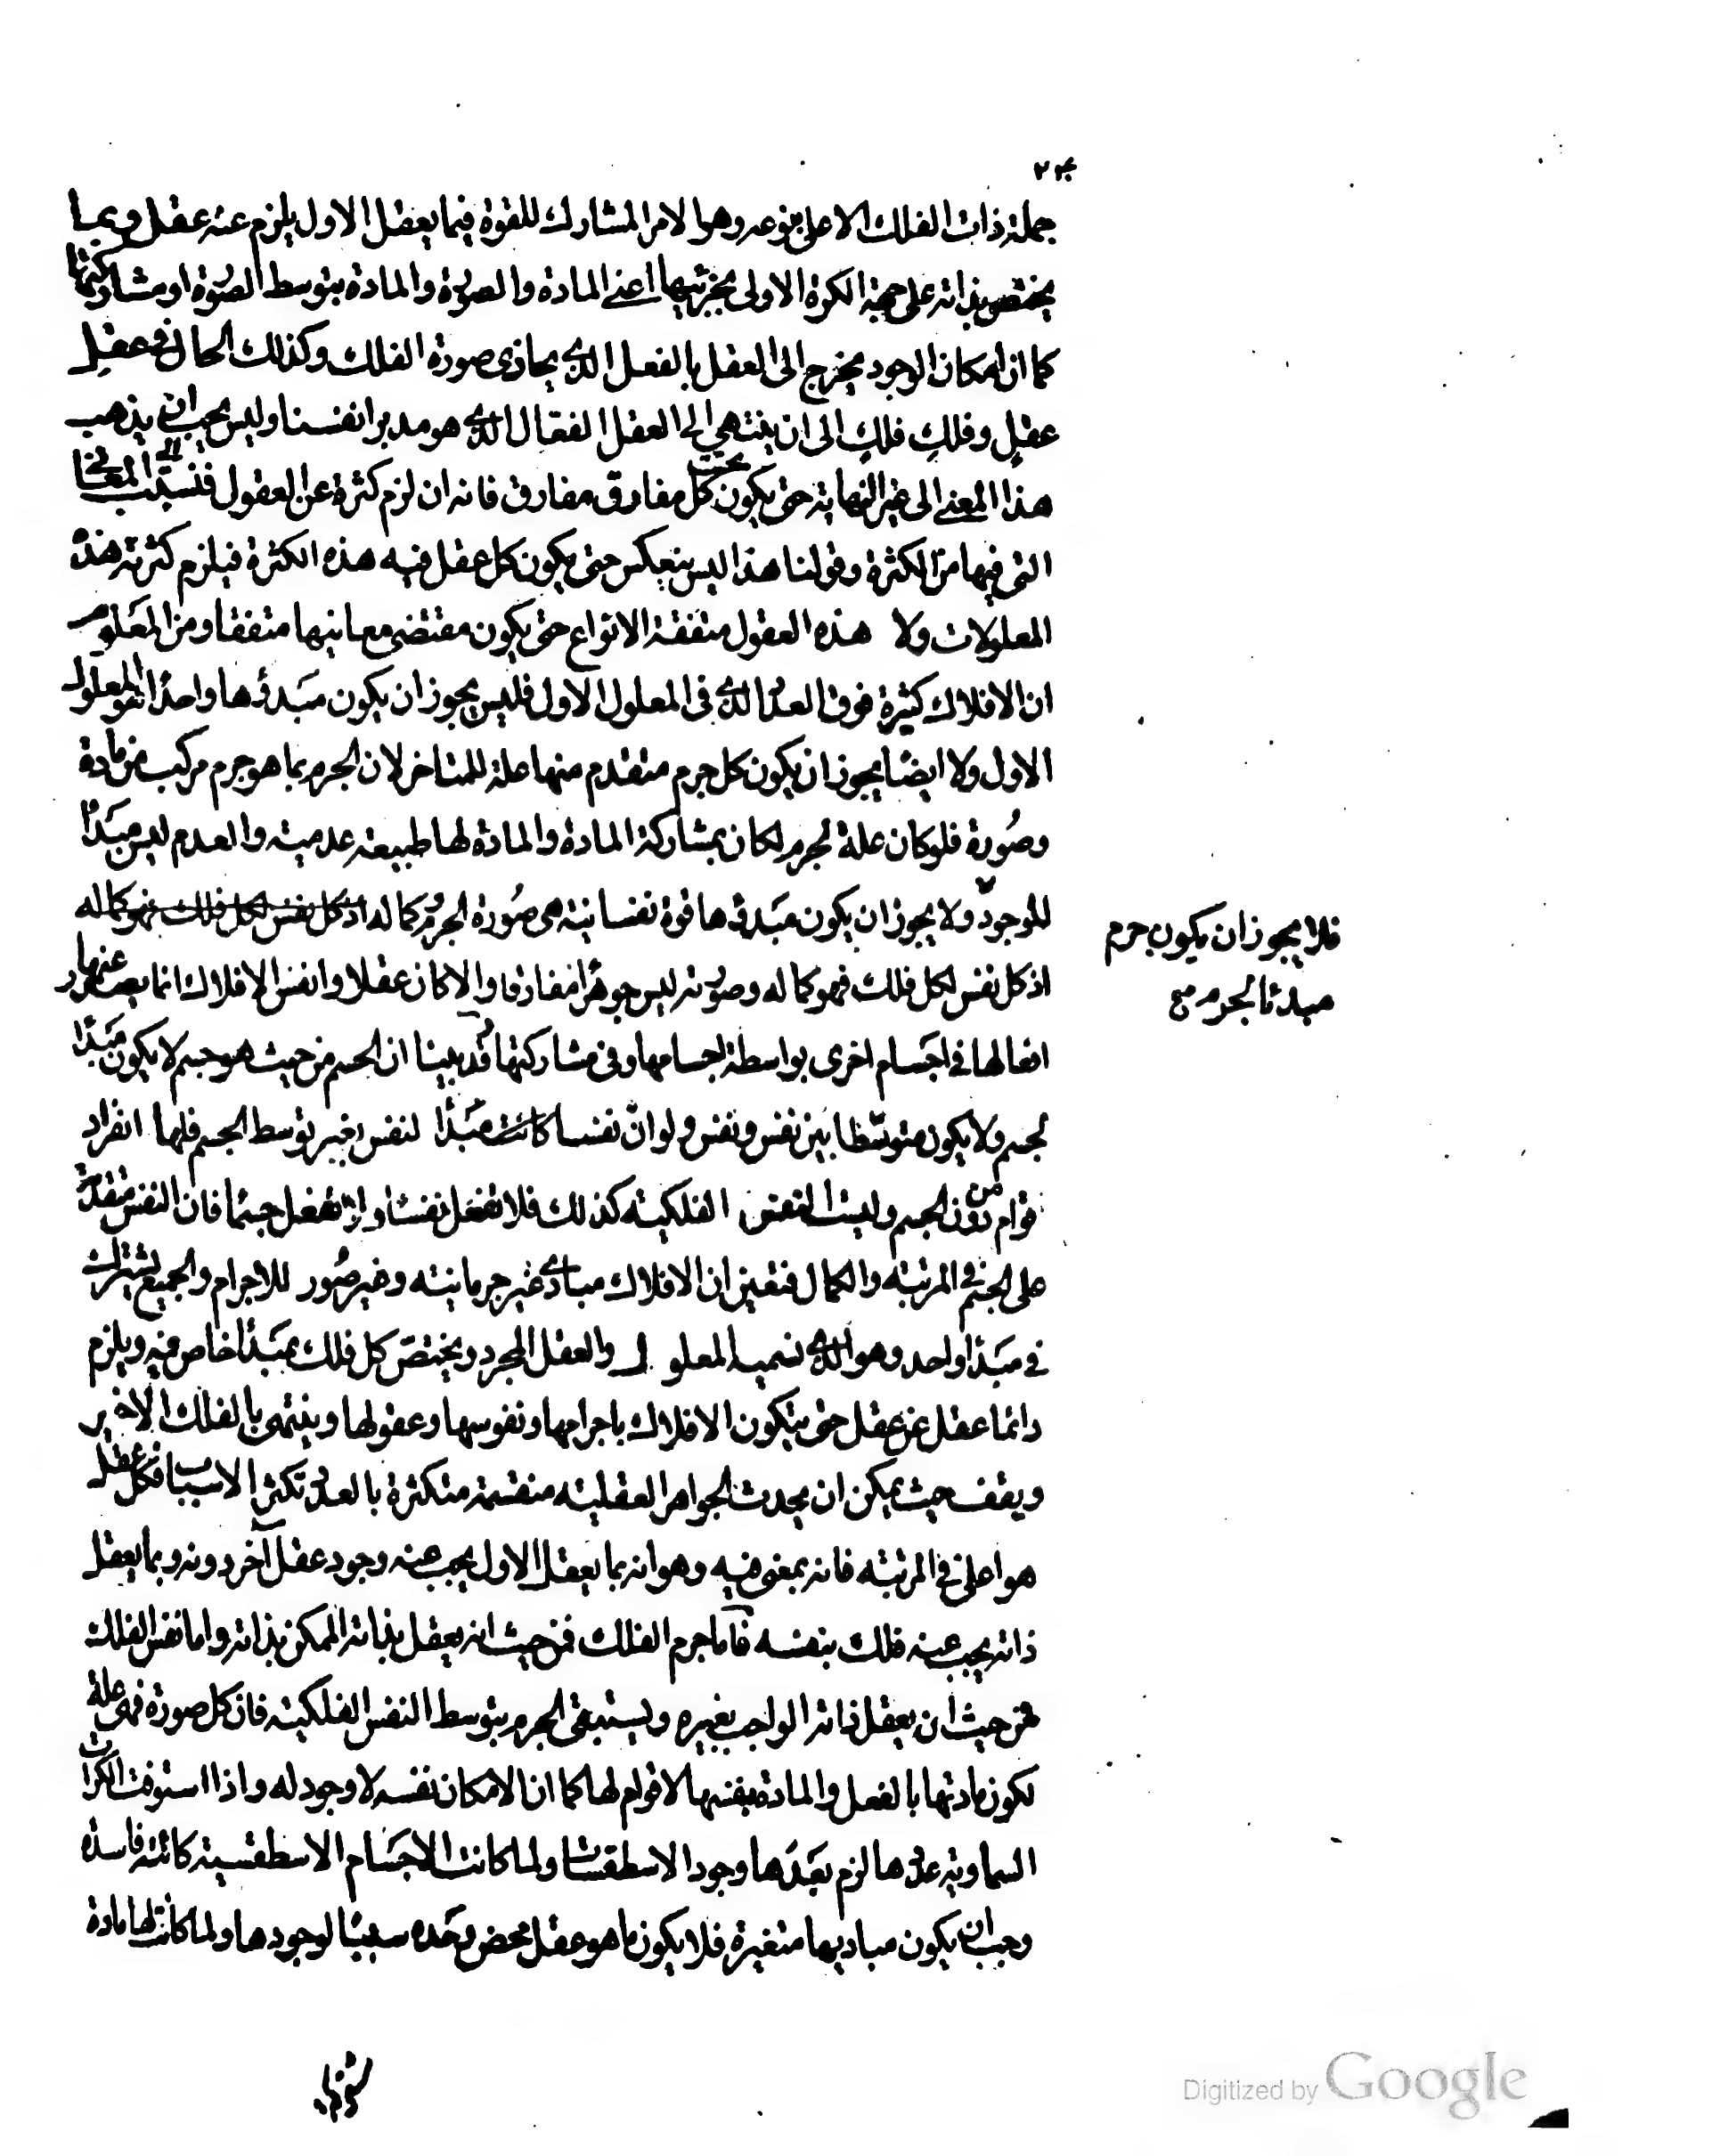 ٢٣
جملة ذات الفلك الاعلى بنوعه وهو الامر المشارك للقوة فيما يعقل الاول يلزم عنه عقل وبما
يختص بذاته على جهة الكرة الاولى بجزئيها اعنى المادة والصورة والمادة بتوسط الصورة او مشاركتها
كما ان امكان الوجود يخرج الى العقل بالفعل الذى يحاذى صورة الفلك وكذلك الحال فى عقل
عقل وفلك فلك الى ان ينتهى الى العقل الفعال الذى هو مدبر انفسنا وليس يجب ان يذهب
هذا المعنى الى غير النهاية حتى يكون تحت كل مفارق مفارق فانه ان لزم كثرة عن العقول فنسبت الى المعانى
التى فيها من الكثرة وقولنا هذا ليس ينعكس حتى يكون كل عقل فيه هذه الكثرة فيلزم كثرته هذه
المعلولات ولا هذه العقول متفقة الانواع حتى يكون مقتضى معانيها متفقا ومن المعلوم
ان الافلاك كثيرة فوق العدد الذى فى المعلول الاول فليس يجوز ان يكون مبدؤها واحدا هو المعلول
الاول ولا ايضا يجوز ان يكون كل جرم متقدم منها علة للمتاخر لان الجرم بما هو جرم مركب من مادة
وصورة فلو كان علة لجرم لكان بمشاركة المادة والمادة لها طبيعة عدمية والعدم ليس مبدأ
للوجود ولا يجوز ان يكون مبدؤها قوة نفسانية هى صورة الجرم وكماله اذ كل نفس لكل فلك فهو كماله
فلا يجوز ان يكون جرم
مبدئا لجرم صح
اذ كل نفس لكل فلك فهو كماله وصورته ليس جوهرا مفارقا والا كان عقلا وانفس الافلاك انما يصدر عنها
افعالها فى اجسام اخرى بواسطة اجسامها وفى مشاركتها وقد بينا ان الجسم من حيث هو جسم لا يكون مبدأ
لجسم ولا يكون متوسطا بين نفس ونفس ولو ان نفسا كانت مبدأ لنفس بغير توسط الجسم فلها انفراد
قوام من دون الجسم وليست النفس الفلكية كذلك فلا تفعل نفسا ولا تفعل جسما فان النفس متقدمة
على الجسم فى المرتبة والكمال فتعين ان الافلاك مبادى غير جرمانية وغير صور للاجرام والجميع يشترك
فى مبدأ واحد وهو الذى نسميه المعلول والعقل المجرد ويختص كل فلك بمبدأ خاص فيه ويلزم
دائما عقل عن عقل حتى يتكون الافلاك باجرامها ونفوسها وعقولها وينتهى بالفلك الاخير
ويقف حيث يمكن ان يحدث الجواهر العقلية منقسمة متكثرة بالعدد تكثر الاسباب فكل عقل
هو اعلى فى المرتبة فانه بمعنى فيه وهو انه بما يعقل الاول يجب عنه وجود عقل آخر دونه وبما يعقل
ذاته يجب عنه فلك بنفسه فاما جرم الفلك فمن حيث انه يعقل بذاته الممكن بذاته واما نفس الفلك
فمن حيث ان يعقل ذاته الواجب بغيره ويستبقى الجرم بتوسط النفس الفلكية فان كل صورة فهى علة
لكون مادتها بالفعل والمادة بنفسها لا قوام لها كما ان الامكان نفسه لا وجود له واذا استوفت الكرات
السماوية عددها لزم بعدها وجود الاسطقسات ولما كانت الاجسام الاسطقسية كائنة فاسدة
وجب ان يكون مباديها متغيرة فلا يكون ما هو عقل محض وحده سببا لوجودها ولما كانت لها مادة
Digitized by Google